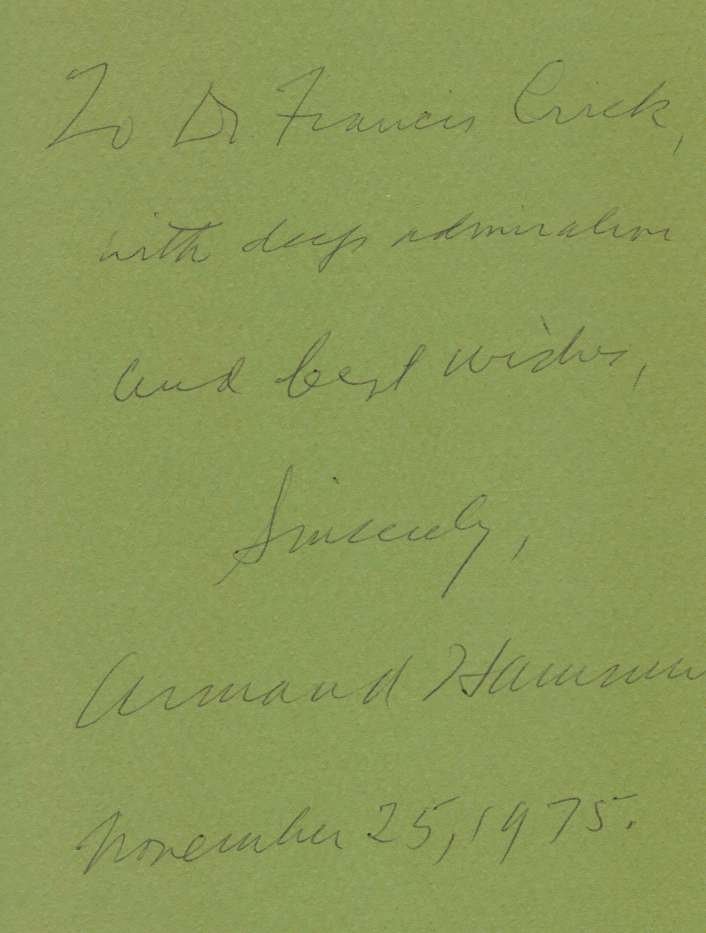 To Dr Francis Crick,
with deep admiration
and best wishes,
Sincerely,
Armand Hammer
November 25, 1975.